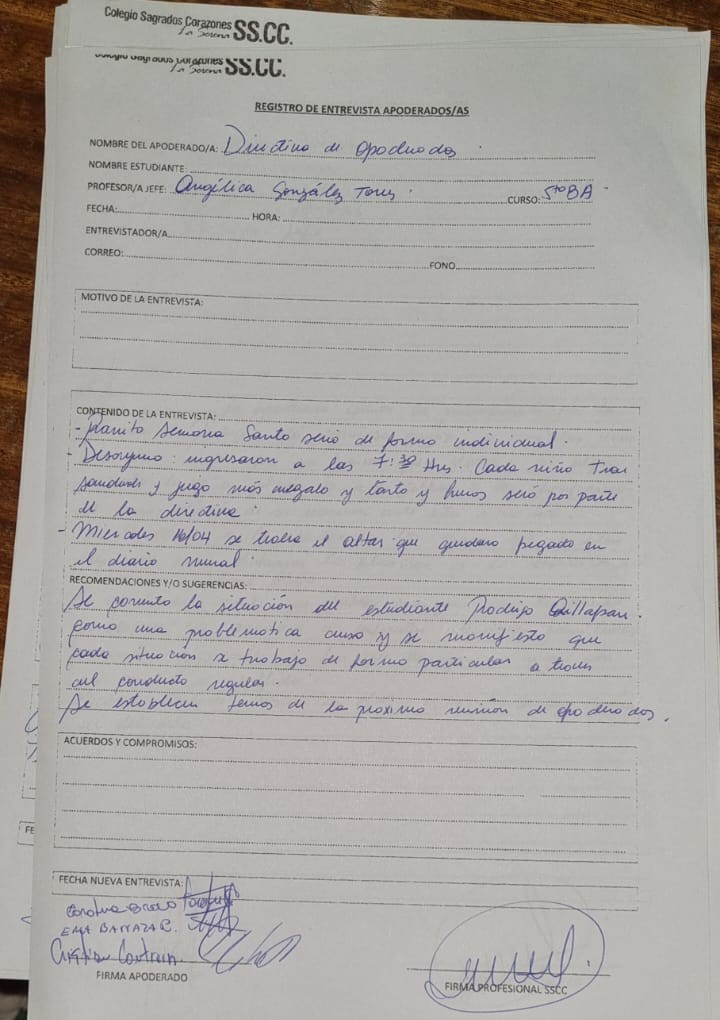 Colegio Sagrados Corazones
La Serena SS.CC.
Colegio Sagrados Corazones
La Serena SS.CC.
REGISTRO DE ENTREVISTA APODERADOS/AS
NOMBRE DEL APODERADO/A: Directiva de apoderados
NOMBRE ESTUDIANTE:
PROFESOR/A JEFE: Angélica González Torres CURSO: 5to BA
FECHA: HORA:
ENTREVISTADOR/A
CORREO: FONO
MOTIVO DE LA ENTREVISTA:
CONTENIDO DE LA ENTREVISTA:
- Panito Semana Santa será de forma individual.
- Desayuno: ingresaron a las 7:30 Hrs. Cada niño trae
y jugo más y torta y será por parte
de la directiva.
- Miércoles 16/04 se traerá el altar que quedara pegado en
el diario mural.
RECOMENDACIONES Y/O SUGERENCIAS:
Se comento la situación del estudiante Rodrigo Quillapan.
como una problematica curso y se manifesto que
cada situacion se trabaja de forma particular a traves
del conducto regular.
Se establecen temas de la proxima reunión de apoderados.
ACUERDOS Y COMPROMISOS:
FECHA NUEVA ENTREVISTA:
EMA BARRAZA C.
Cristian Contreras
FIRMA APODERADO
FIRMA PROFESIONAL SSCC
FE